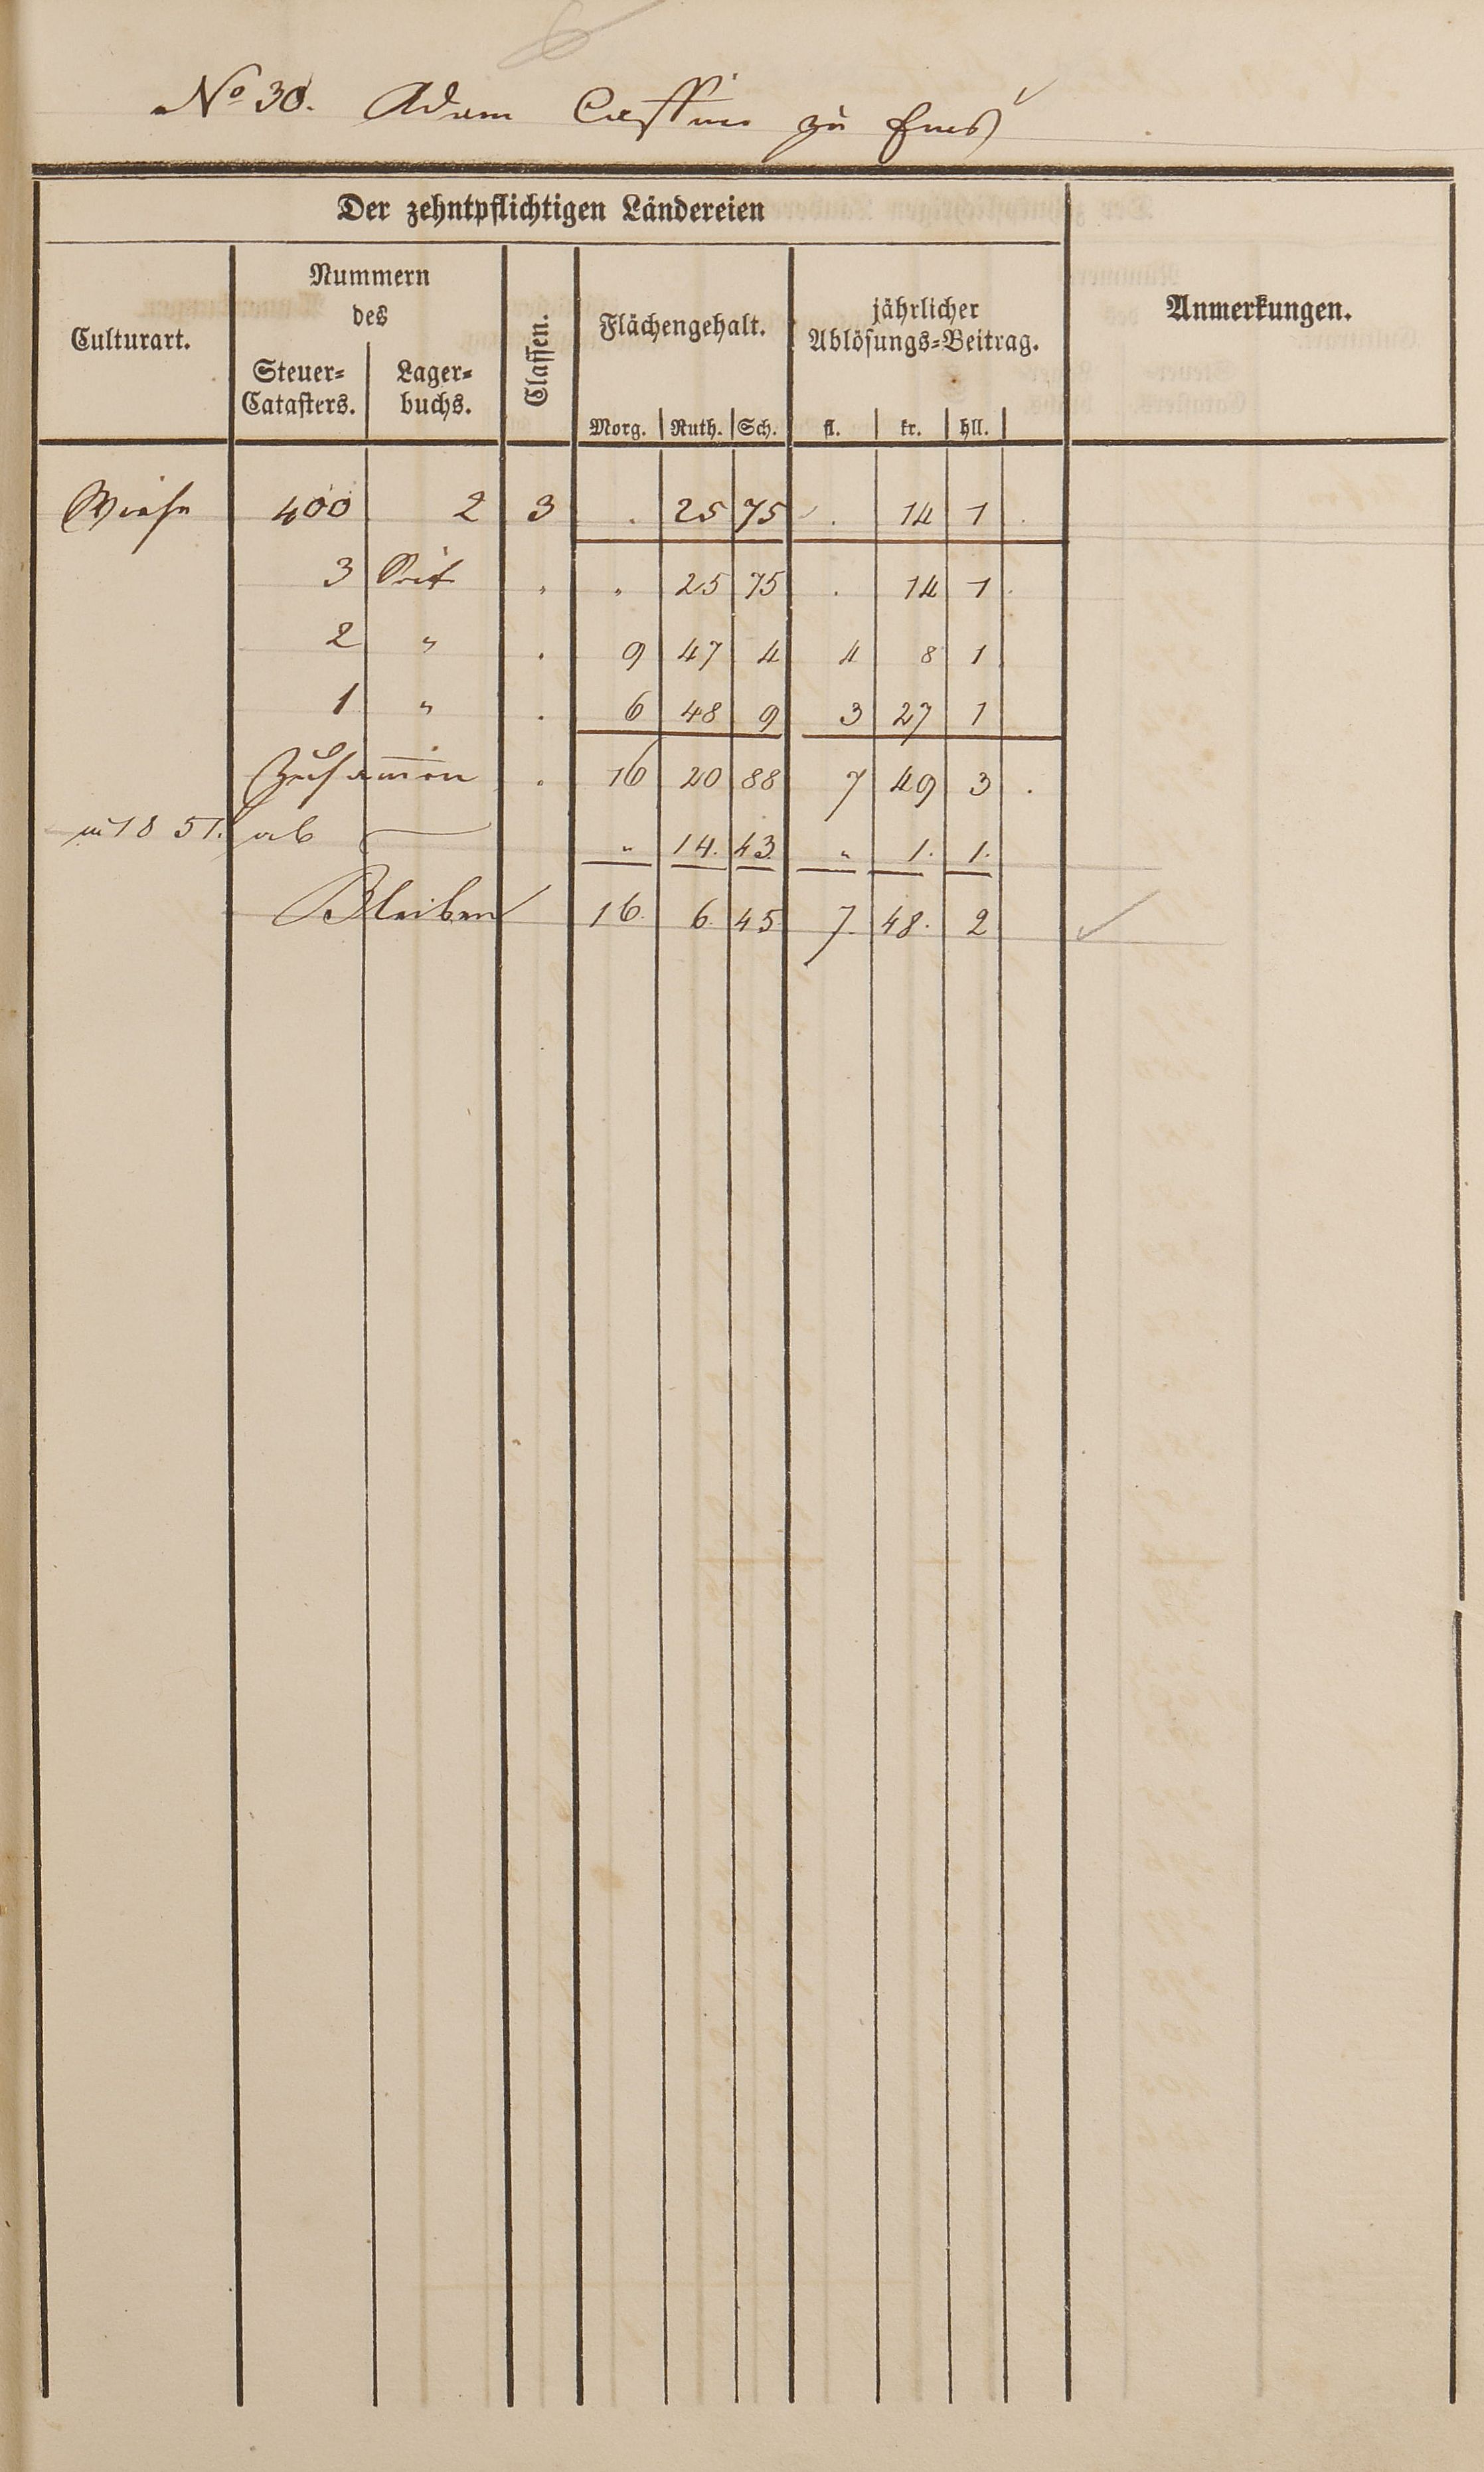 6
No 30. Adam zu
Der zehntpflichtigen Ländereien
Culturart.
Nummern
des
Steuer-
Catasters.
Lager-
buchs.
Classen.
Flächengehalt.
Morg. Ruth. Sch.
jährlicher
Ablösungs-Beitrag.
fl. kr. hll.
Anmerkungen.
Wiese 400 2 3 . 25 75 . 14 1 .
3 Seit . . 25 75 . 14 1 .
2 " . 9 47 4 4 8 1
1 " . 6 48 9 3 27 1
Zusam̅en . 16 20 88 7 49 3 .
in 1851. ab " 14. 43. " 1. 1.
Bleiben 16. 6. 45 7. 48. 2